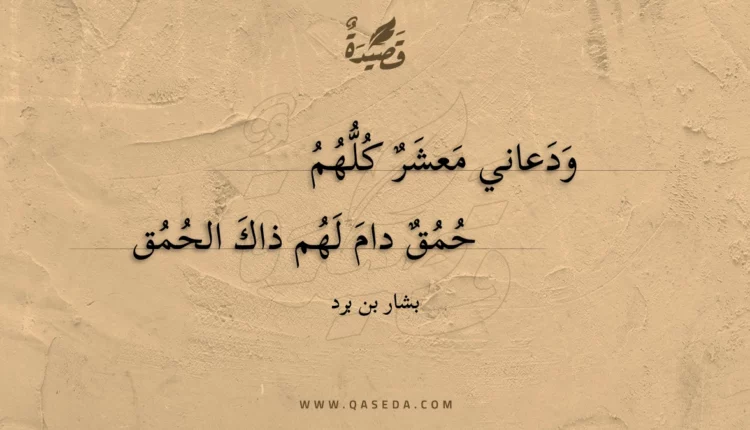 قَصِيْدَةٌ
وَدَعاني مَعشَرٌ كُلُّهُمُ
حُمُقٌ دامَ لَهُم ذاكَ الحُمُق
بشار بن برد
WWW.QASEDA.COM